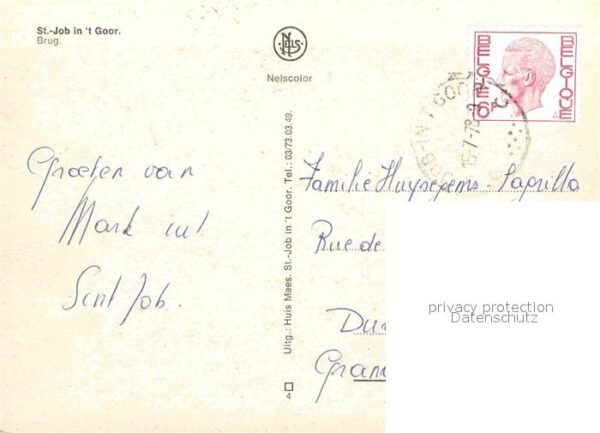 St.-Job in 't Goor.
Brug.
NELS
Nelscolor
BELGIE
BELGIQUE
6F
JOB-IN-'T GOOR
15-7-78
Groeten van
Mark uit
Sint Job.
Uitg.: Huis Maes. St.-Job in 't Goor. Tel.: 03/73.03.49.
4
Familie Huysegems - Saprilla
Rue de
privacy protection
Datenschutz